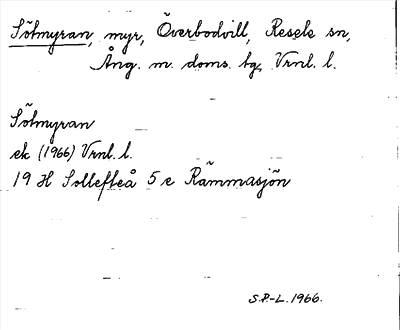 Sötmyran, myr, Överbodvill, Resele sn,
Ång. m. doms. bg, Vrnl. l.
Sötmyran
ek (1966) Vrnl. l.
19 H Sollefteå 5 e Rämmasjön
S.P.-L. 1966.